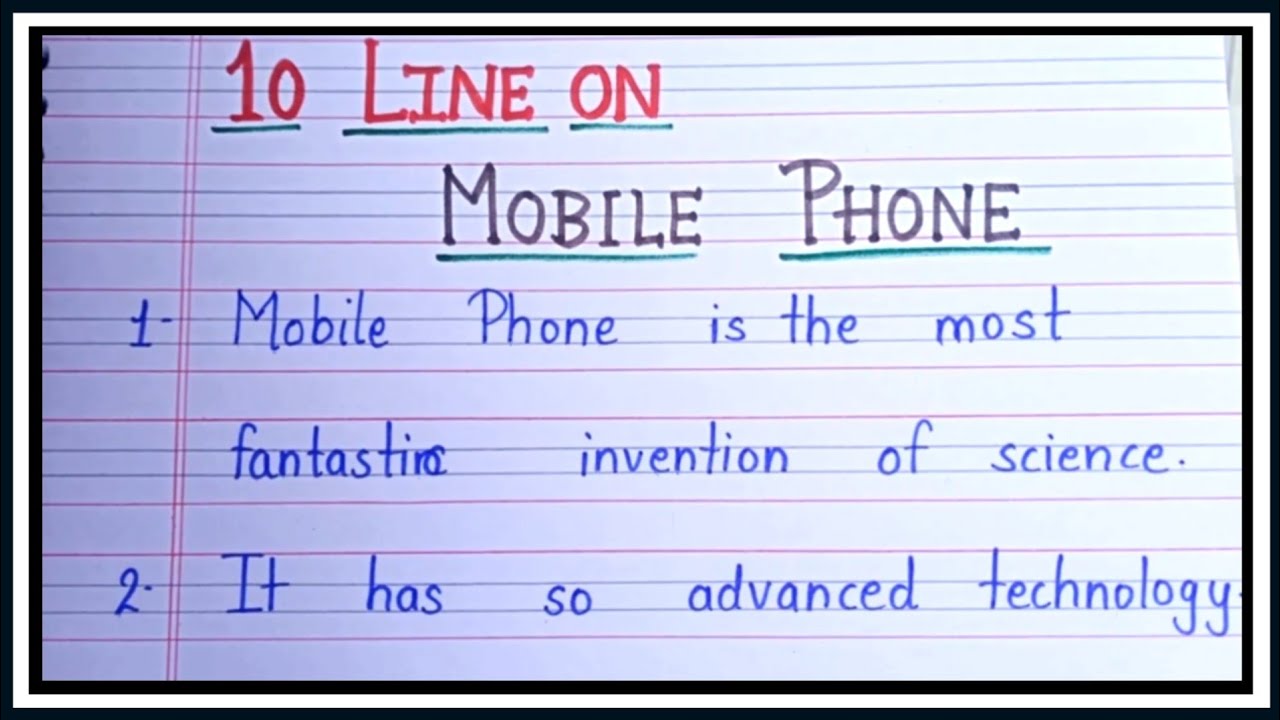 10 LINE ON
MOBILE PHONE
1- Mobile Phone is the most
fantastic invention of science.
2- It has so advanced technology.